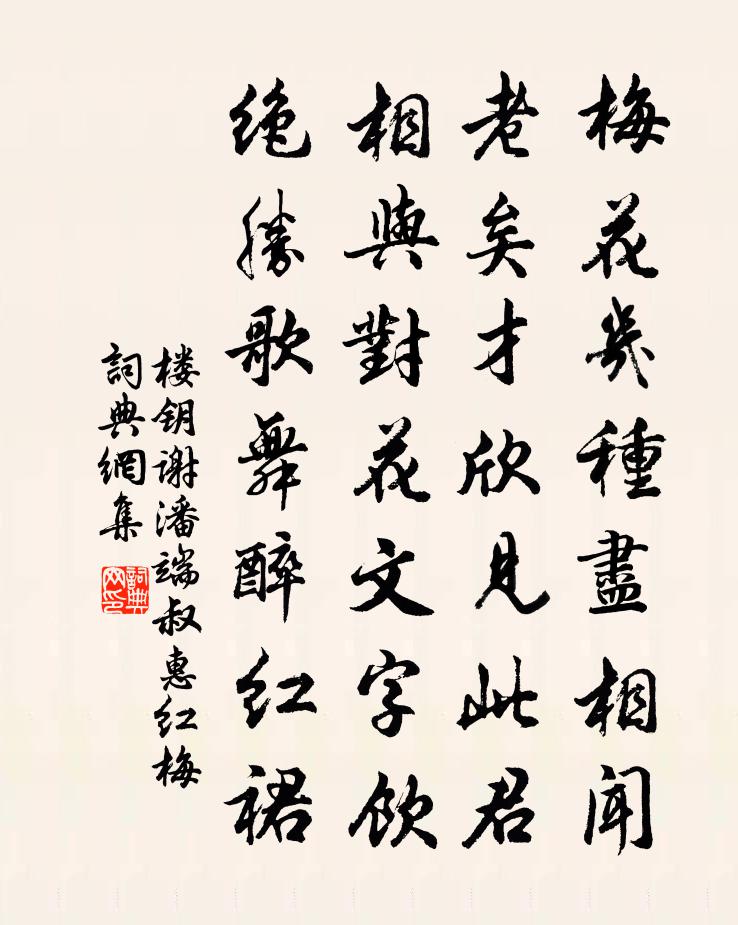 梅花幾種盡相聞
老矣才欣見此君
相與對花文字飲
絶勝歌舞醉紅裙
楼钥谢潘端叔惠红梅
詞典網集
詞典网印